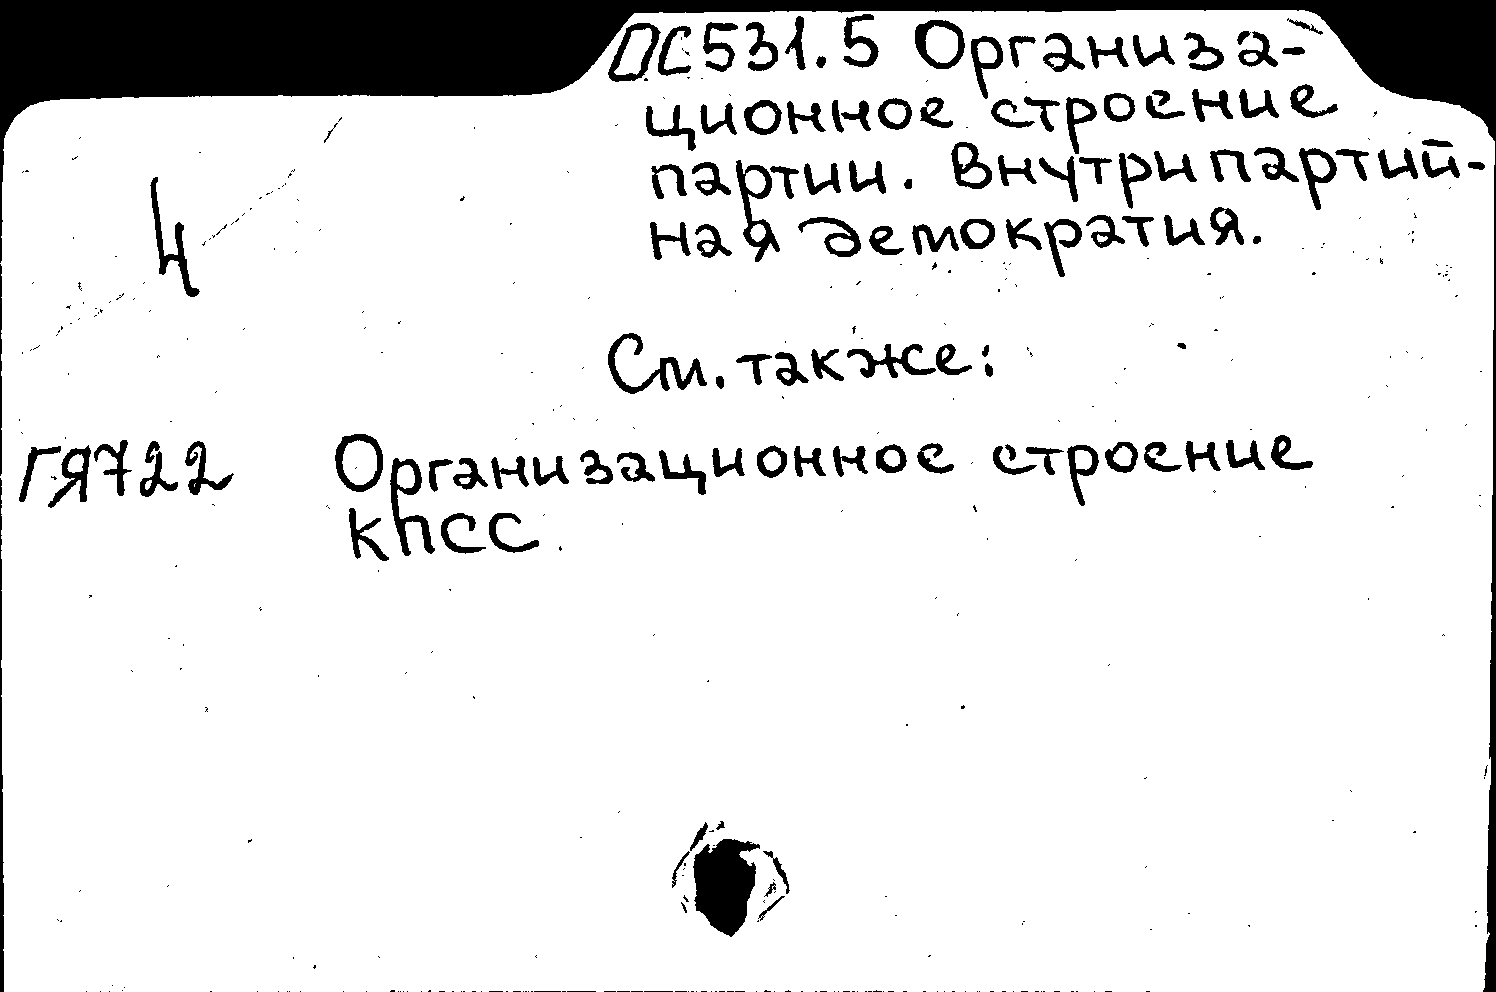 ДС531.5 Организа-
ционное строение
партии. Внутрипартий-
ная демократия.
4
См. также:
ГЯ722 Организационное строение
КПСС